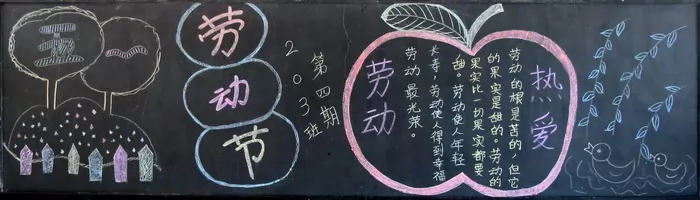 五一
劳
动
节
第四期
203班
热爱
劳动的根是苦的，但它
的果实是甜的。劳动的
果实比一切果实都要
甜。劳动使人年轻
长寿，劳动使人得到幸福
劳动 最光荣。
劳动